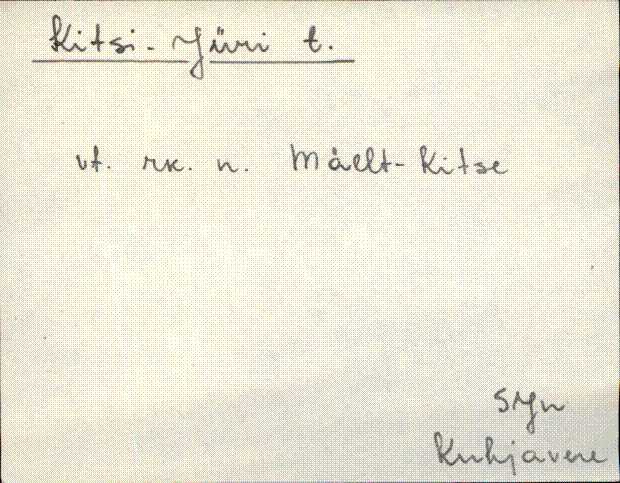 Kitsi-Jüri t.
vt. rk. n. Mäelt-Kitse
SJn
Kuhjavere